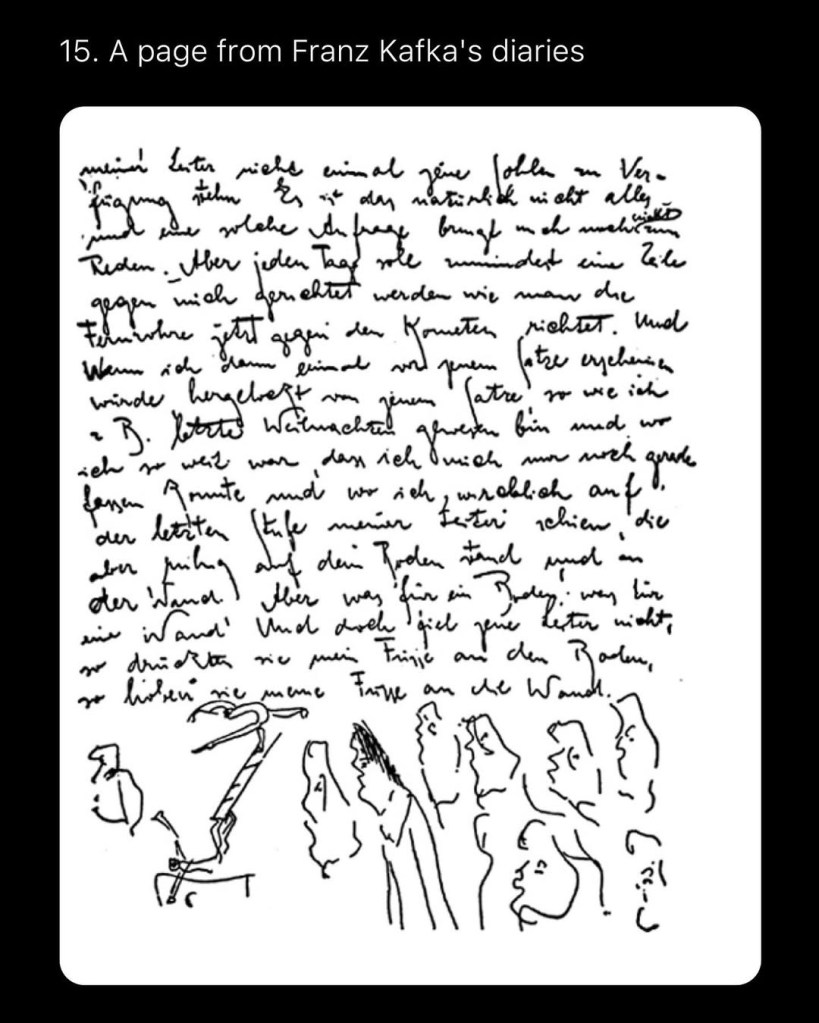 15. A page from Franz Kafka's diaries
meiner Leiter nicht einmal jene Sohlen zur Ver-
fügung stehn. Es ist das natürlich nicht alles
und eine solche Anfrage bringt mich noch nicht zum
Reden. Aber jeden Tag soll zumindest eine Zeile
gegen mich gerichtet werden wie man die
Fernrohre jetzt gegen den Kometen richtet. Und
Wenn ich dann einmal vor jenem Satze erscheinen
würde hergelockt von jenem Satze so wie ich
z B. letzte Weihnachten gewesen bin und wo
ich so weit war, dass ich mich nur noch gerade
fassen konnte und wo ich wirklich auf
der letzten Stufe meiner Leiter schien, die
aber ruhig auf dem Boden stand und an
der Wand. Aber was für ein Boden, was für
eine Wand! Und doch fiel jene Leiter nicht,
so drückten sie meine Füsse an den Boden,
so hoben sie meine Füsse an die Wand.